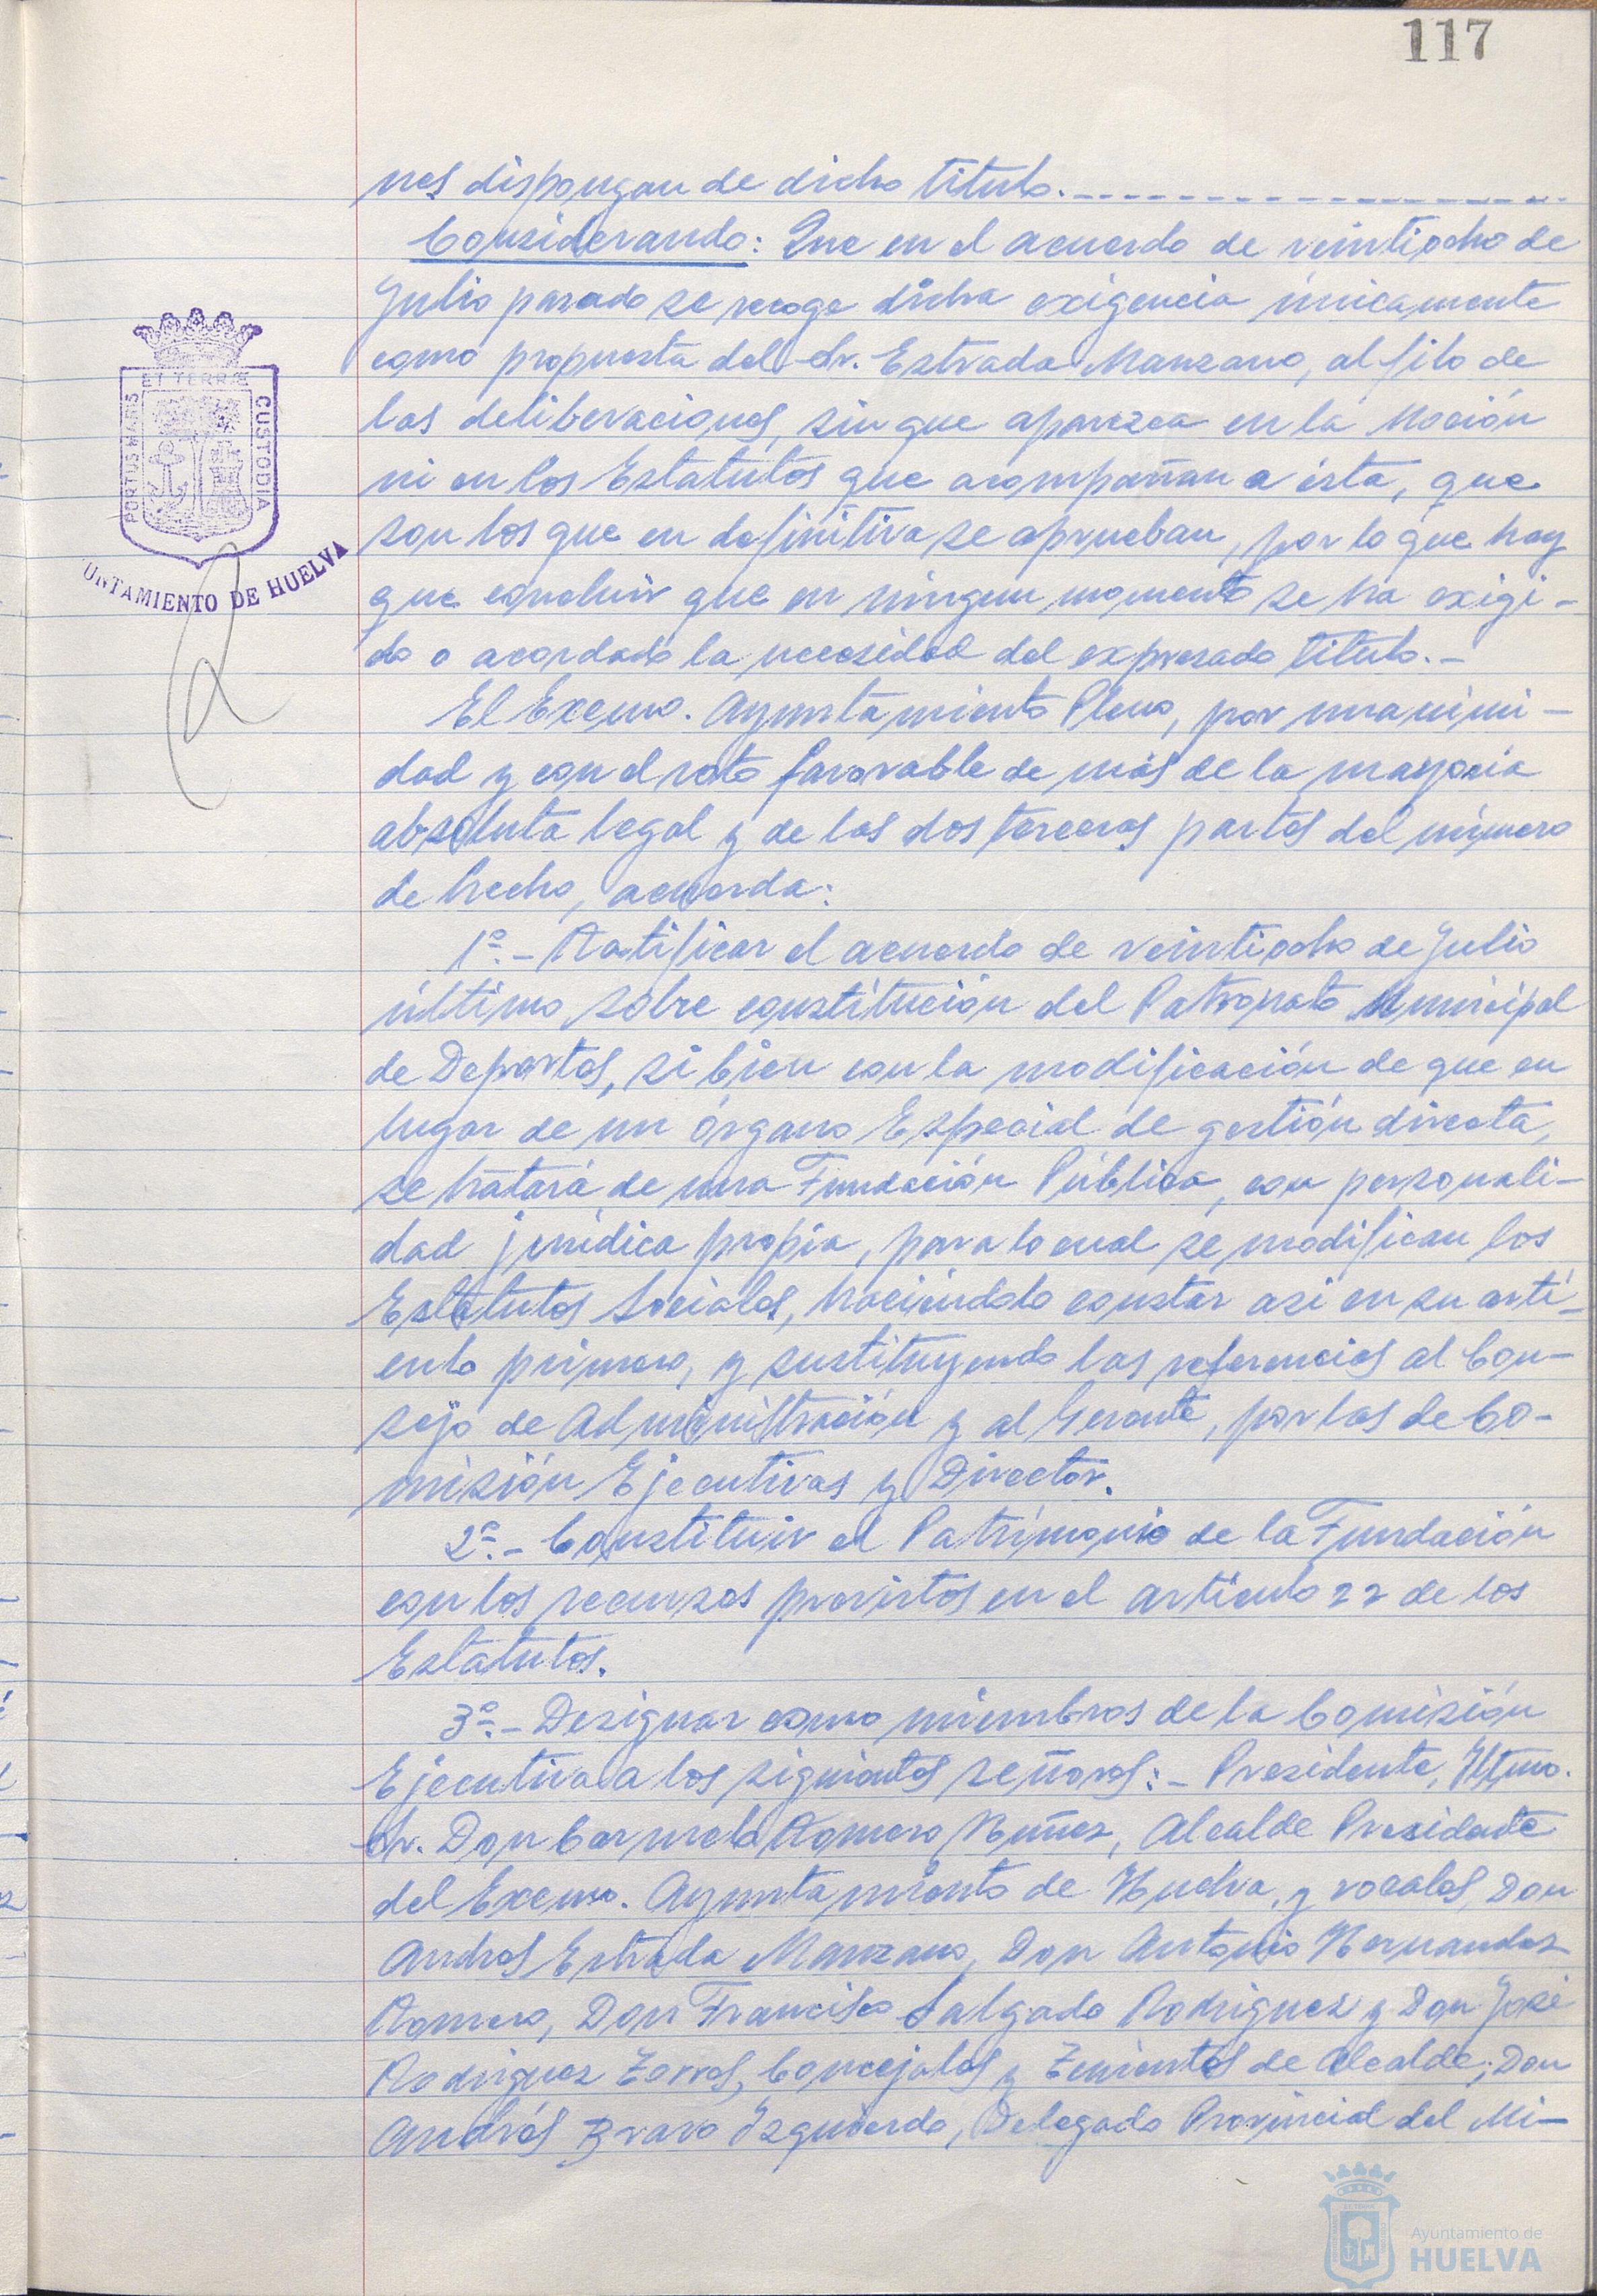 117
nes dispongan de dicho título.
Considerando: Que en el acuerdo de veintiocho de
Julio pasado se recoge dicha exigencia únicamente
como propuesta del Sr. Estrada Manzano, al filo de
las deliberaciones, sin que aparezca en la Moción
ni en los Estatutos que acompañan a ésta, que
son los que en definitiva se aprueban, por lo que hay
que concluir que en ningun momento se ha exigi-
do o acordado la necesidad del expresado título.-
El Excmo. Ayuntamiento Pleno, por unanimi-
dad y con el voto favorable de más de la mayoria
absoluta legal y de las dos terceras partes del número
de hecho, acuerda:
1º.- Ratificar el acuerdo de veintiocho de Julio
último sobre constitución del Patronato Municipal
de Deportes, si bien con la modificación de que en
lugar de un órgano Especial de gestión directa,
se tratará de una Fundación Pública, con personali-
dad jurídica propia, para lo cual se modifican los
Estatutos Sociales, haciéndolo constar asi en su artí-
culo primero, y sustituyendo las referencias al Con-
sejo de Administración y al Gerente, por las de Co-
misión Ejecutivas y Director.
2º.- Constituir el Patrimonio de la Fundación
con los recursos previstos en el artículo 22 de los
Estatutos.
3º.- Designar como miembros de la Comisión
Ejecutiva a los siguientes señores:- Presidente, Iltmo.
Sr. Don Carmelo Romero Núñez, Alcalde Presidente
del Excmo. Ayuntamiento de Huelva, y vocales, Don
Andres Estrada Manzano, Don Antonio Hernandez
Romero, Don Francisco Salgado Rodriguez y Don José
Rodriguez Zarras, Concejales y Tenientes de Alcalde; Don
Andrés Bravo Izquierdo, Delegado Provincial del Mi-
PORTUS MARIS
ET TERRÆ
CUSTODIA
UNTAMIENTO DE HUELVA
Ayuntamiento de
HUELVA